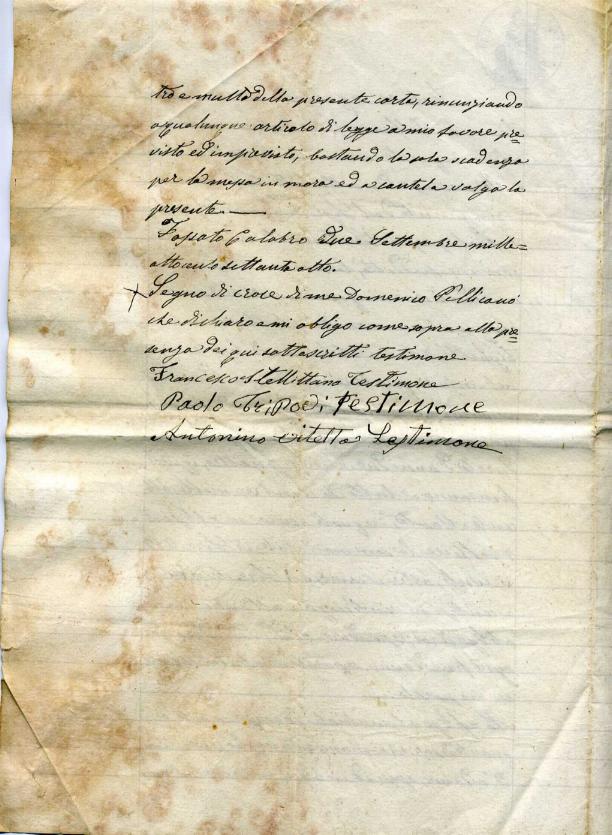 tro e multa della presente carta, rinunziando
a qualunque articolo di legge a mio favore pre=
visto ed imprevisto, bastando la sola scadenza
per la messa in mora ed a cautela valga la
presente. —
Fossato Calabro due Settembre mille=
ottocento settantaotto.
Segno di croce di me Domenico Pellicanò
che dichiaro e mi obligo come sopra alla pre=
senza dei qui sottoscritti testimone
Francesco Stellittano Testimone
Paolo Tripodi Testimone
Antonino Vitetta Testimone